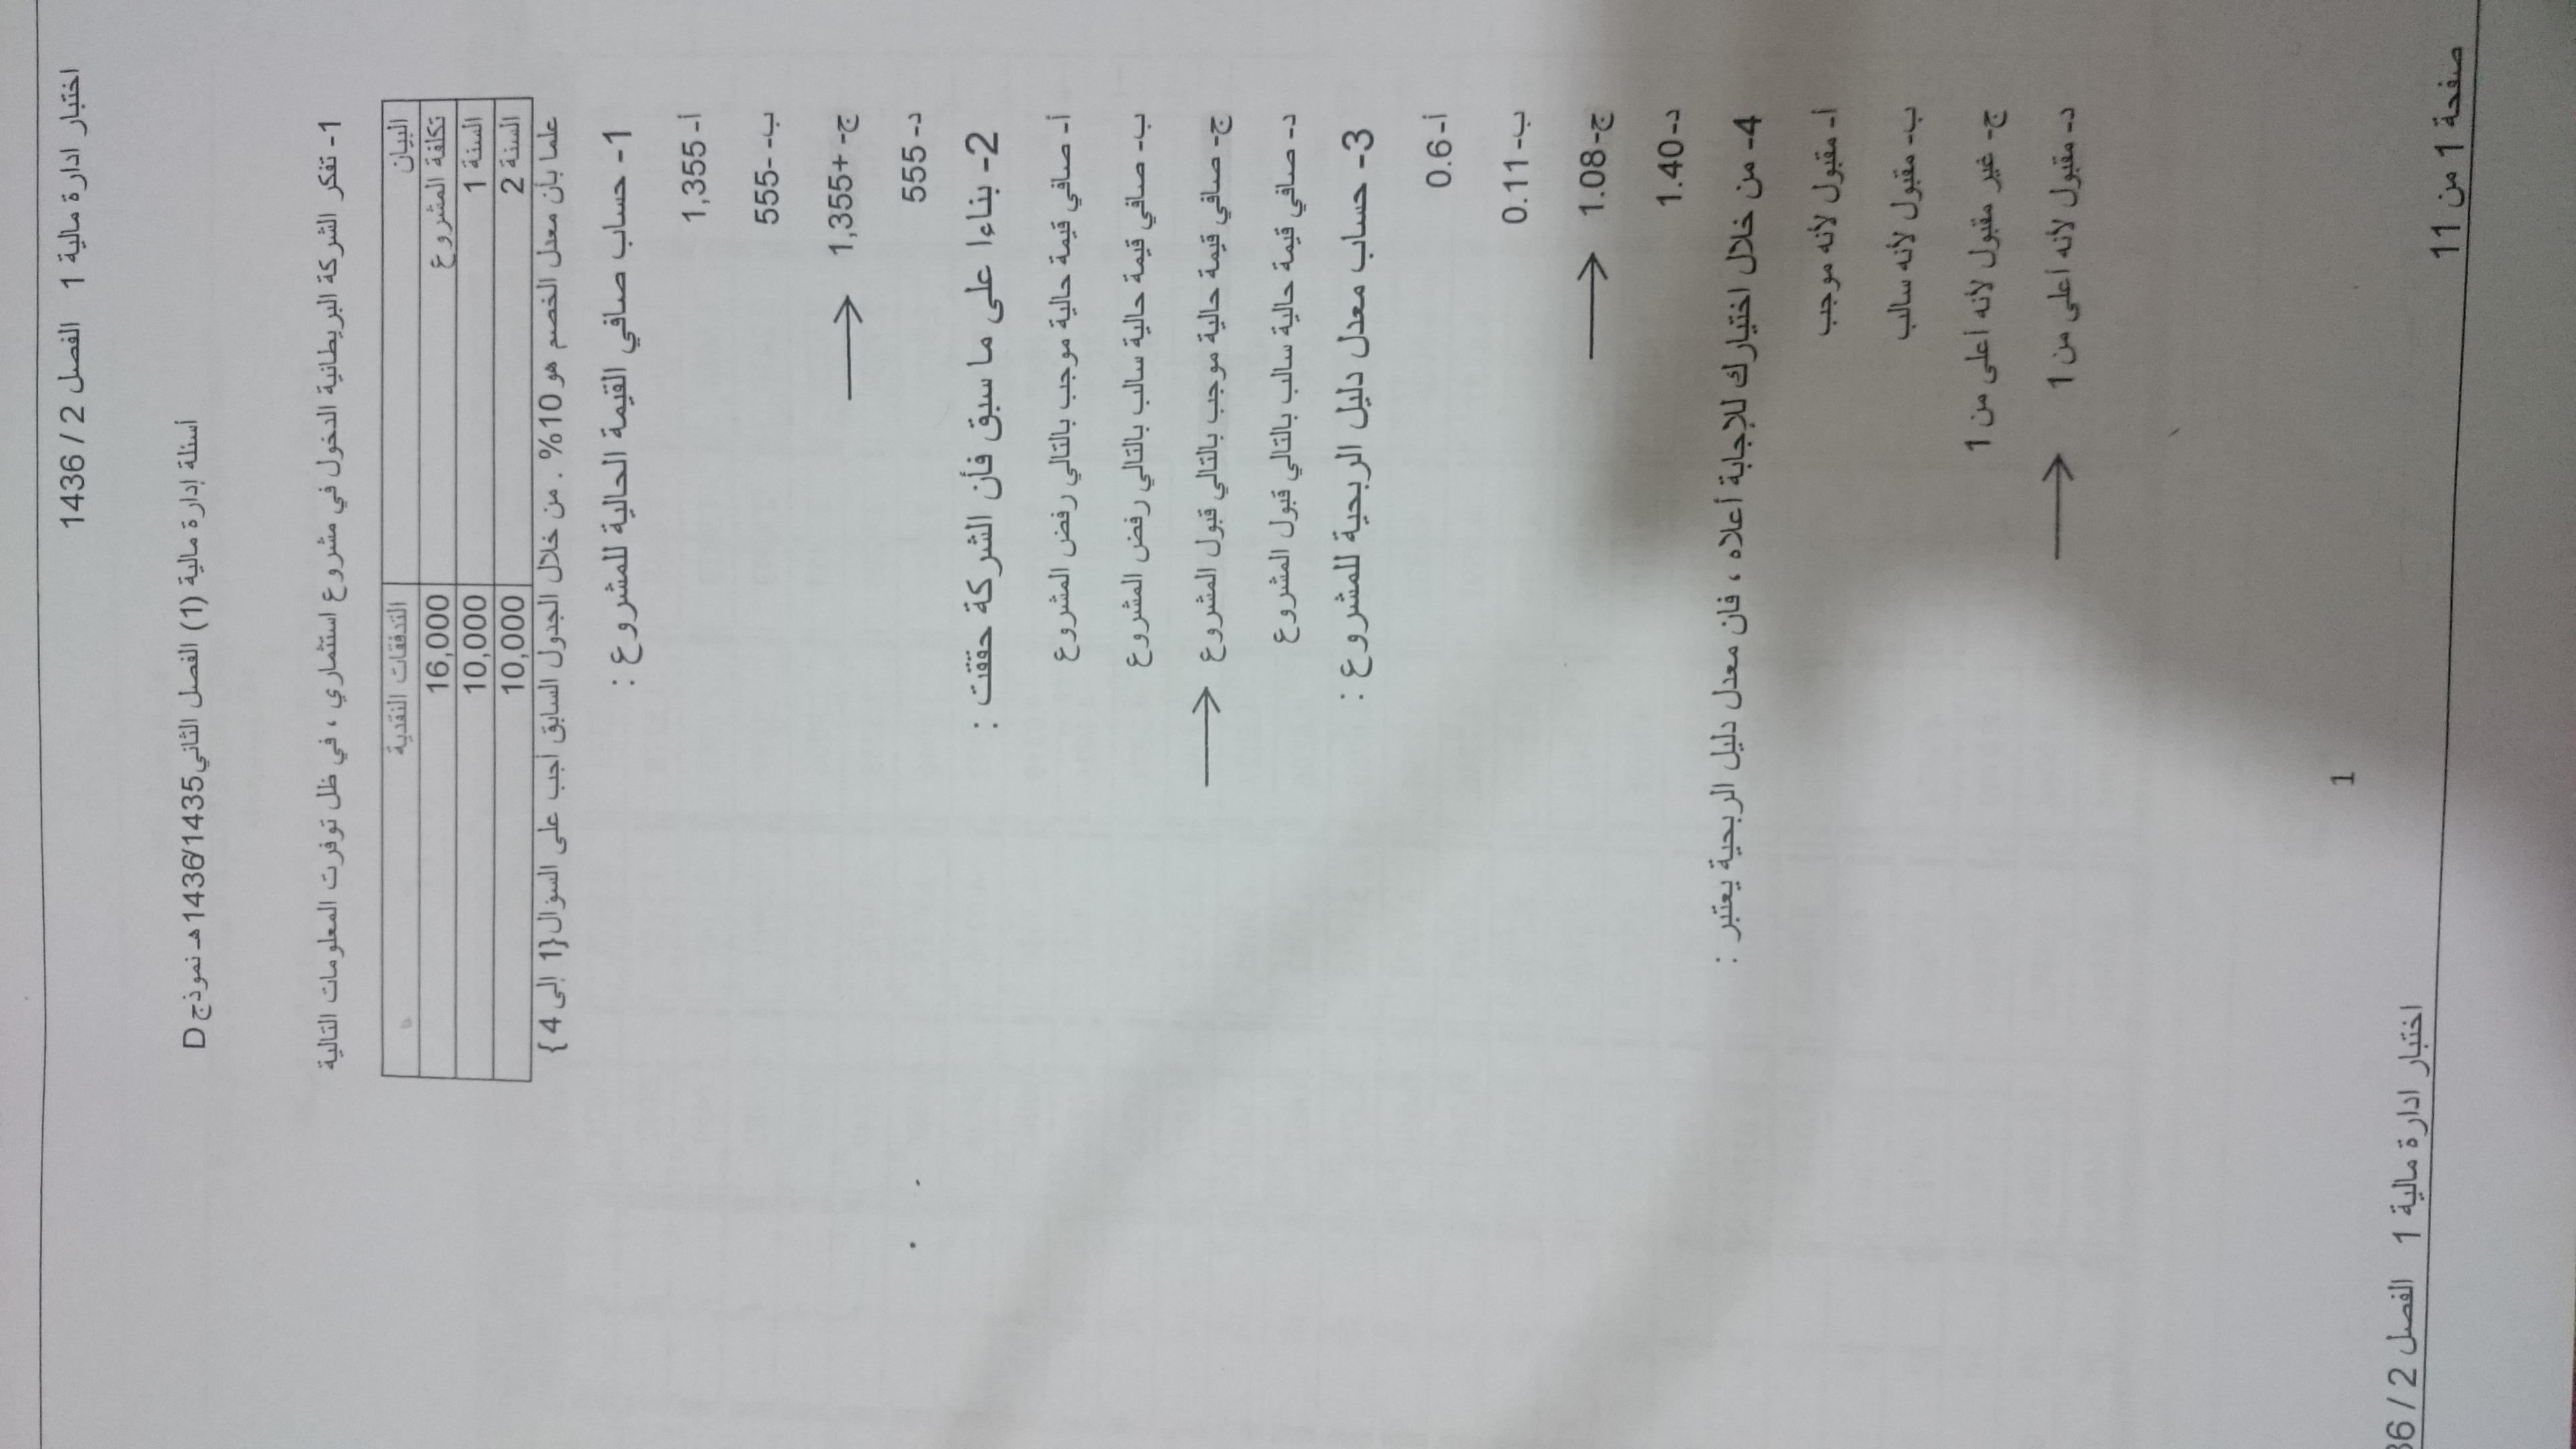 اختبار ادارة مالية 1 الفصل 2 / 1436
أسئلة إدارة مالية (1) الفصل الثاني 1436/1435هـ نموذج D
1- تفكر الشركة البريطانية الدخول في مشروع استثماري ، في ظل توفرت المعلومات التالية
البيان التدفقات النقدية
تكلفة المشروع 16,000
السنة 1 10,000
السنة 2 10,000
علما بأن معدل الخصم هو 10% . من خلال الجدول السابق أجب على السؤال{1 إلى 4 }
1- حساب صافي القيمة الحالية للمشروع :
أ- 1,355
ب- -555
ج- +1,355
د- 555
2- بناءا على ما سبق فأن الشركة حققت :
أ- صافي قيمة حالية موجب بالتالي رفض المشروع
ب- صافي قيمة حالية سالب بالتالي رفض المشروع
ج- صافي قيمة حالية موجب بالتالي قبول المشروع
د- صافي قيمة حالية سالب بالتالي قبول المشروع
3- حساب معدل دليل الربحية للمشروع :
أ- 0.6
ب- 0.11
ج- 1.08
د- 1.40
4- من خلال اختيارك للإجابة أعلاه ، فان معدل دليل الربحية يعتبر :
أ- مقبول لأنه موجب
ب- مقبول لأنه سالب
ج- غير مقبول لأنه أعلى من 1
د- مقبول لأنه أعلى من 1
1
صفحة 1 من 11
اختبار ادارة مالية 1 الفصل 2 / 36